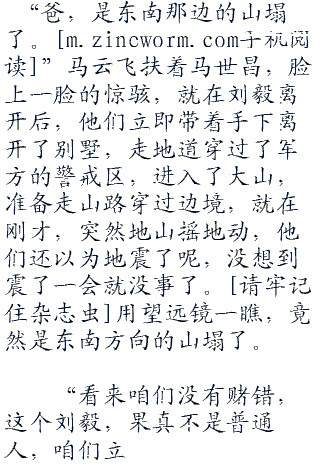 “爸，是东南那边的山塌
了。[m.zincworm.com手机阅
读]”马云飞扶着马世昌，脸
上一脸的惊骇，就在刘毅离
开后，他们立即带着手下离
开了别墅，走地道穿过了军
方的警戒区，进入了大山，
准备走山路穿过边境，就在
刚才，突然地山摇地动，他
们还以为地震了呢，没想到
震了一会就没事了。[请牢记
住杂志虫]用望远镜一瞧，竟
然是东南方向的山塌了。
“看来咱们没有赌错，
这个刘毅，果真不是普通
人，咱们立